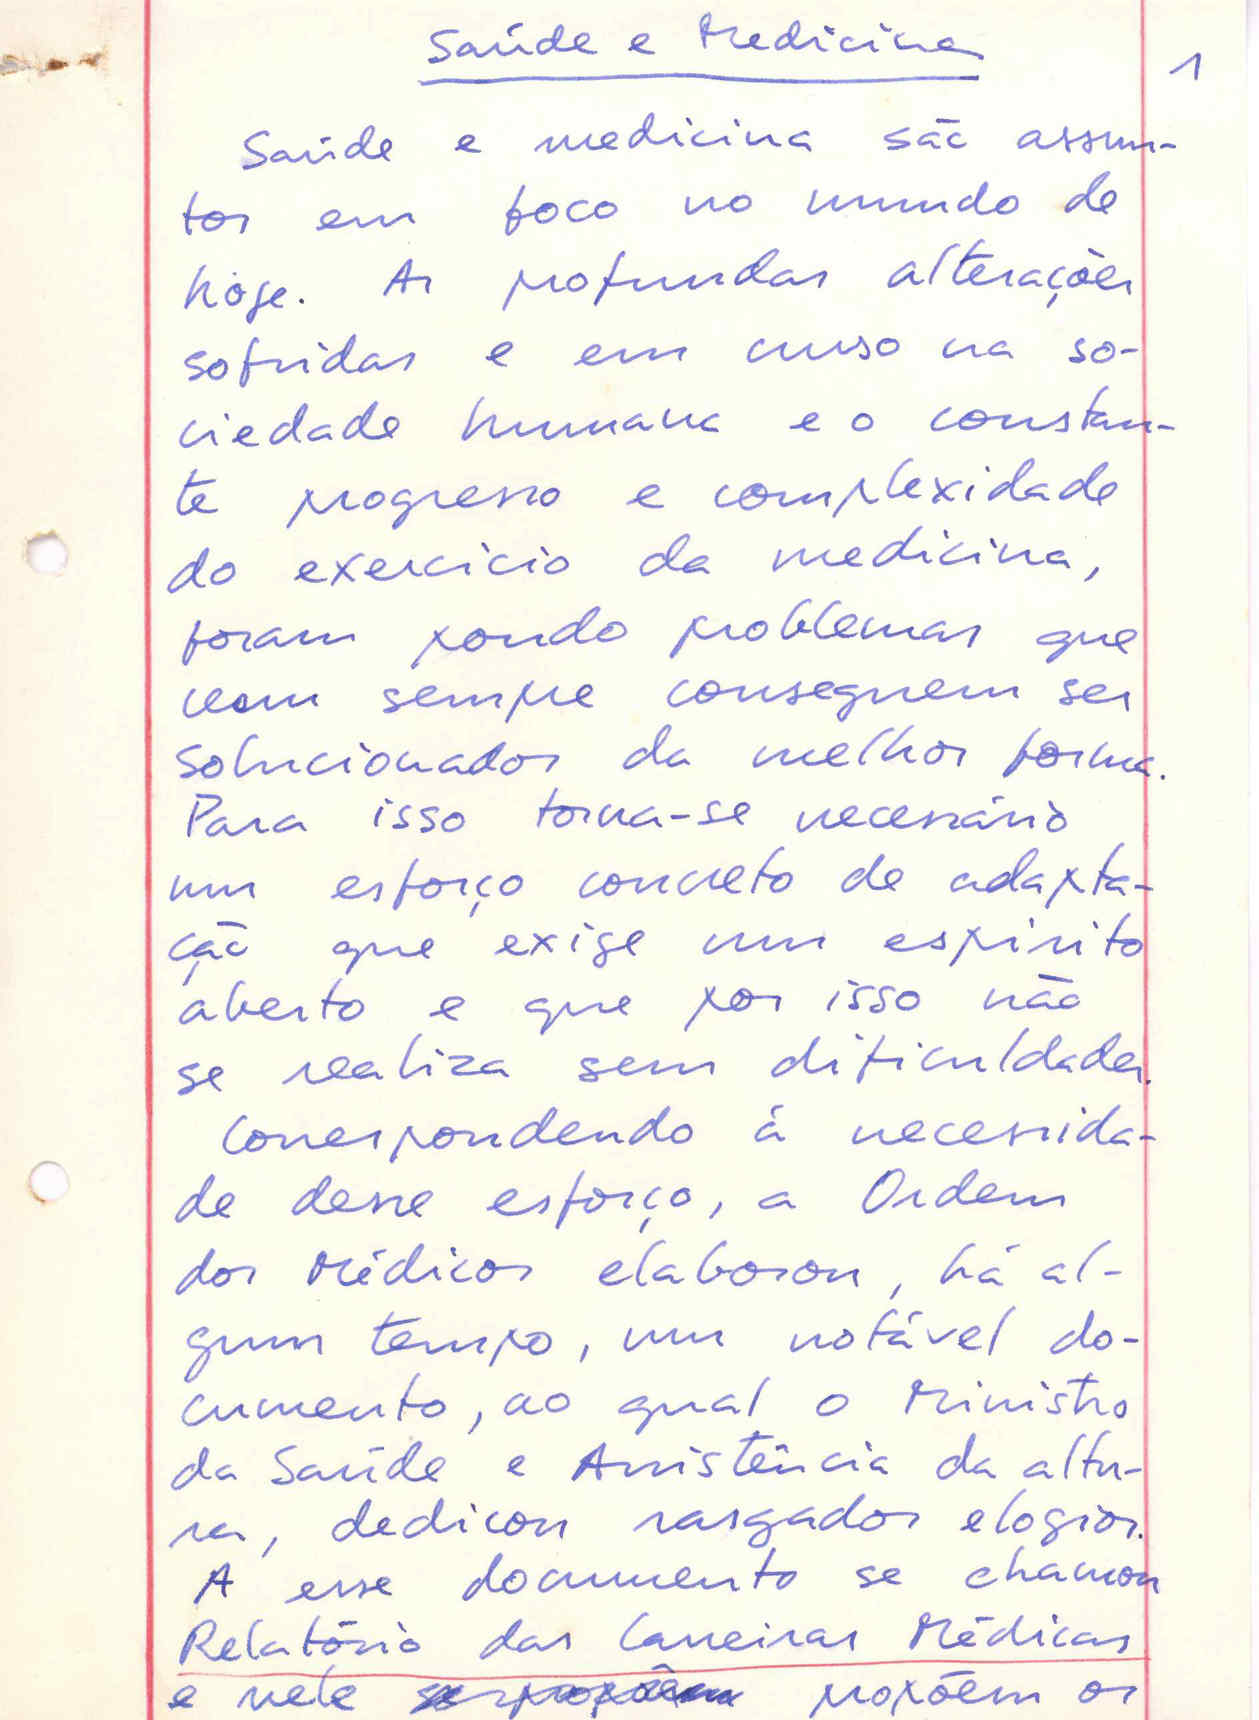 Saúde e Medicina
1
Saúde e medicina são assun-
tos em foco no mundo de
hoje. As profundas alterações
sofridas e em curso na so-
ciedade humana e o constan-
te progresso e complexidade
do exercício da medicina,
foram pondo problemas que
nem sempre conseguem ser
solucionados da melhor forma.
Para isso torna-se necessário
um esforço concreto de adapta-
ção que exige um espírito
aberto e que por isso não
se realiza sem dificuldades.
Correspondendo à necessida-
de desse esforço, a Ordem
dos Médicos elaborou, há al-
gum tempo, um notável do-
cumento, ao qual o Ministro
da Saúde e Assistência da altu-
ra, dedicou rasgados elogios.
A esse documento se chamou
Relatório das Carreiras Médicas
e nele propõem os